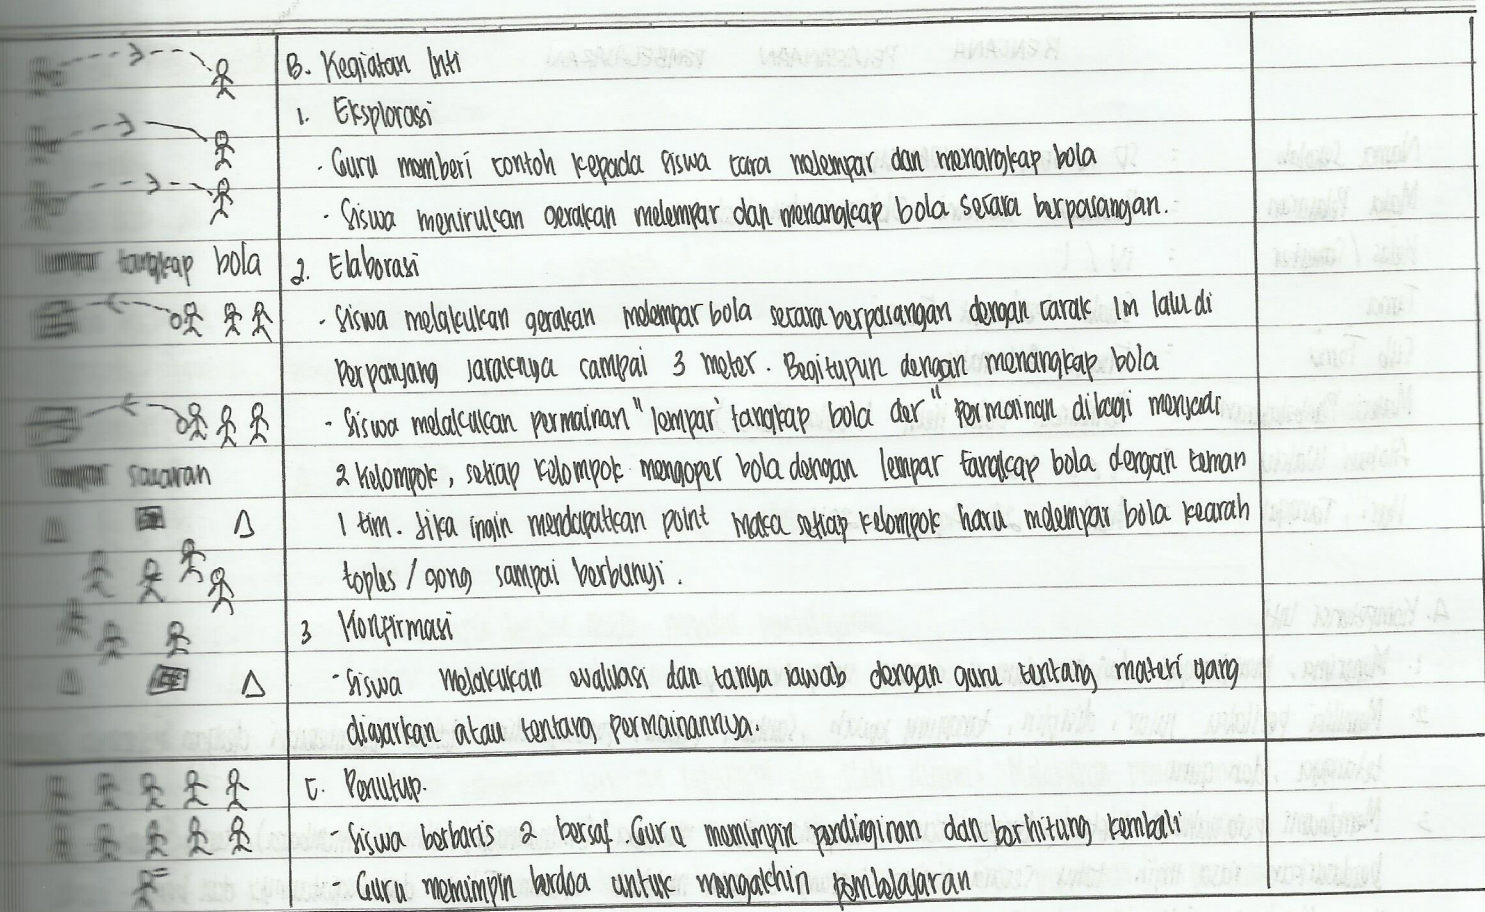 B. Kegiatan Inti
1. Eksplorasi
- Guru memberi contoh kepada siswa cara melempar dan menangkap bola
- Siswa menirukan gerakan melempar dan menangkap bola secara berpasangan.
tangkap bola
2. Elaborasi
- Siswa melakukan gerakan melempar bola secara berpasangan dengan carak 1m lalu di
perpanjang jaraknya sampai 3 meter. Begitupun dengan menangkap bola
- Siswa melakukan permainan "lempar tangkap bola der" permainan dibagi menjadi
sasaran
2 kelompok, setiap kelompok mengoper bola dengan lempar tangkap bola dengan teman
1 tim. Jika ingin mendapatkan point maka setiap kelompok haru melempar bola kearah
toples / gong sampai berbunyi.
3 Konfirmasi
- Siswa melakukan evaluasi dan tanya jawab dengan guru tentang materi yang
diajarkan atau tentang permainannya.
C. Penutup.
- Siswa berbaris 2 bersaf. Guru memimpin pendinginan dan berhitung kembali
- Guru memimpin berdoa untuk mengakhiri pembelajaran